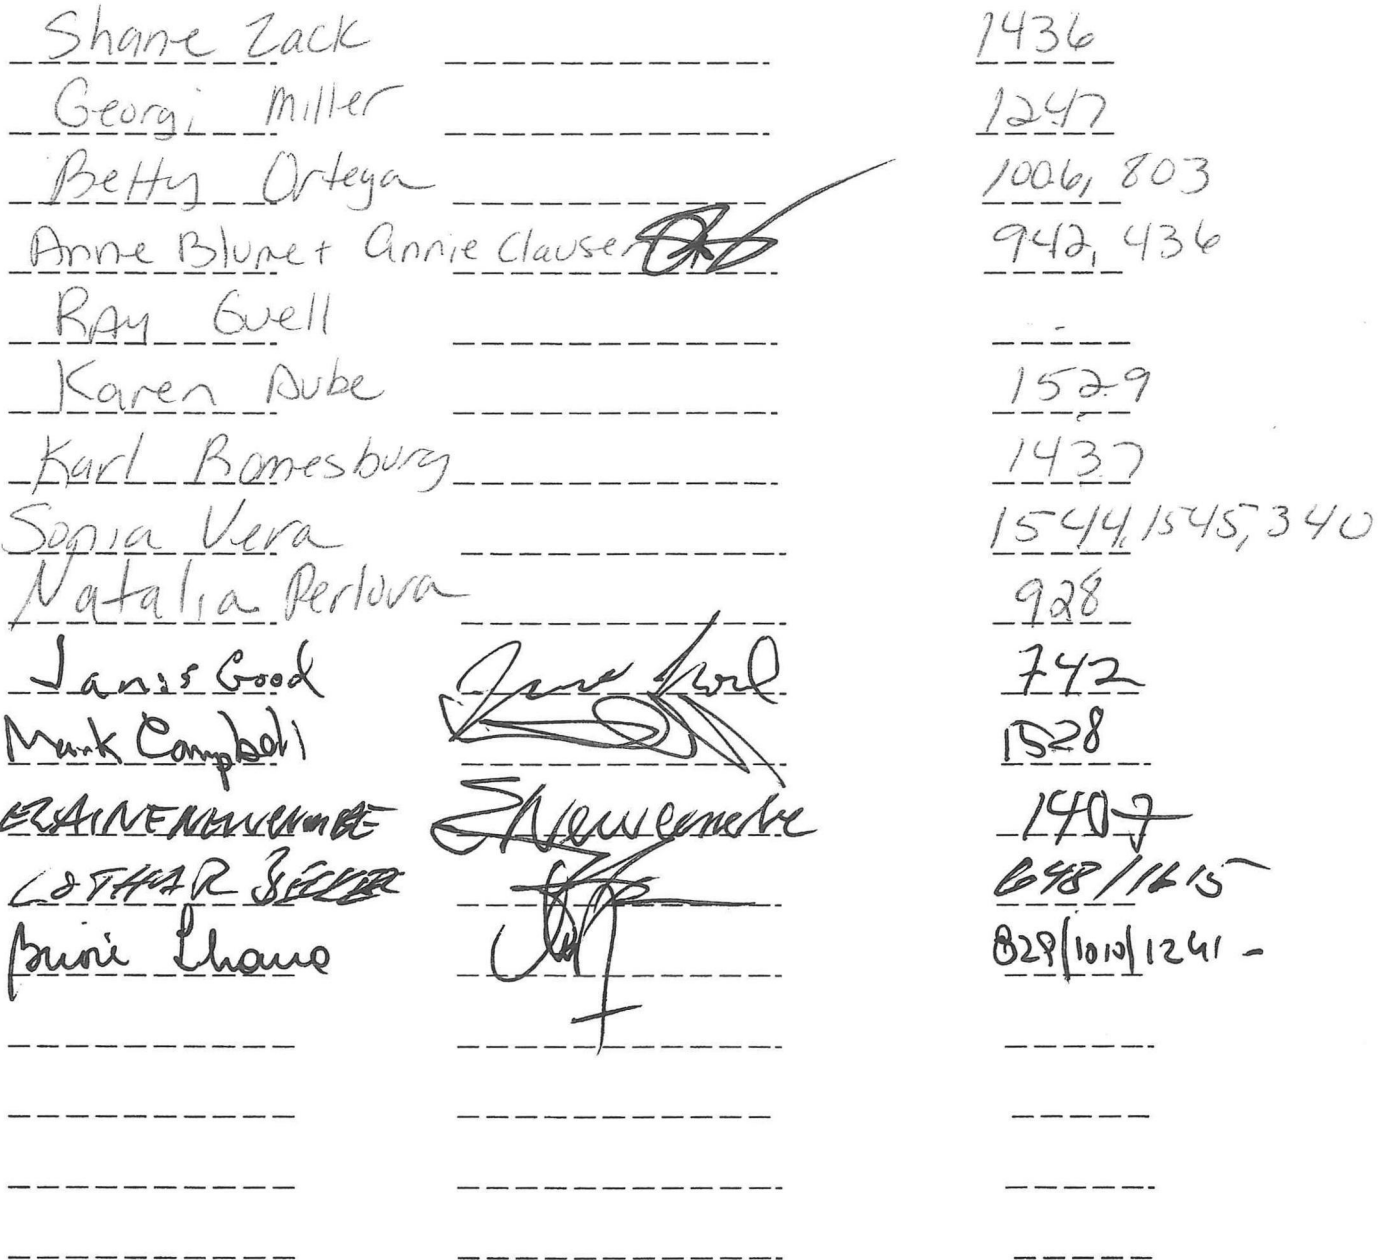 Shane Zack 1436
Georgi Miller 1247
Betty Ortega 1006, 803
Anne Blume + Annie Clauser 942, 436
Ray Guell -
Karen Aube 1529
Karl Romesburg 1437
Sopia Vera 1544, 1545, 340
Natalia Perlova 928
Janis Good 742
Mark Campbell 1528
ELAINE NEWCOMBE ENewcombe 1407
LOTHAR 648/1615
829/1010/1241 -